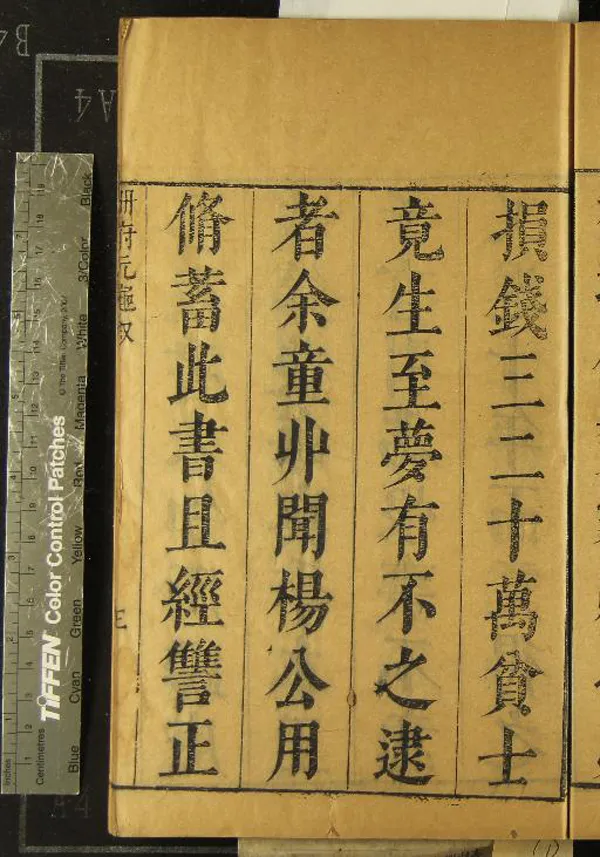 損錢三二十萬貧士
竟生至夢有不之逮
者余童丱聞楊公用
脩蓄此書且經讐正
冊府元龜叙
TIFFEN Color Control Patches
© The Tiffen Company, 2007
Inches
Centimetres
Blue Cyan Green Yellow Red Magenta White 3/Color Black
A4
B4